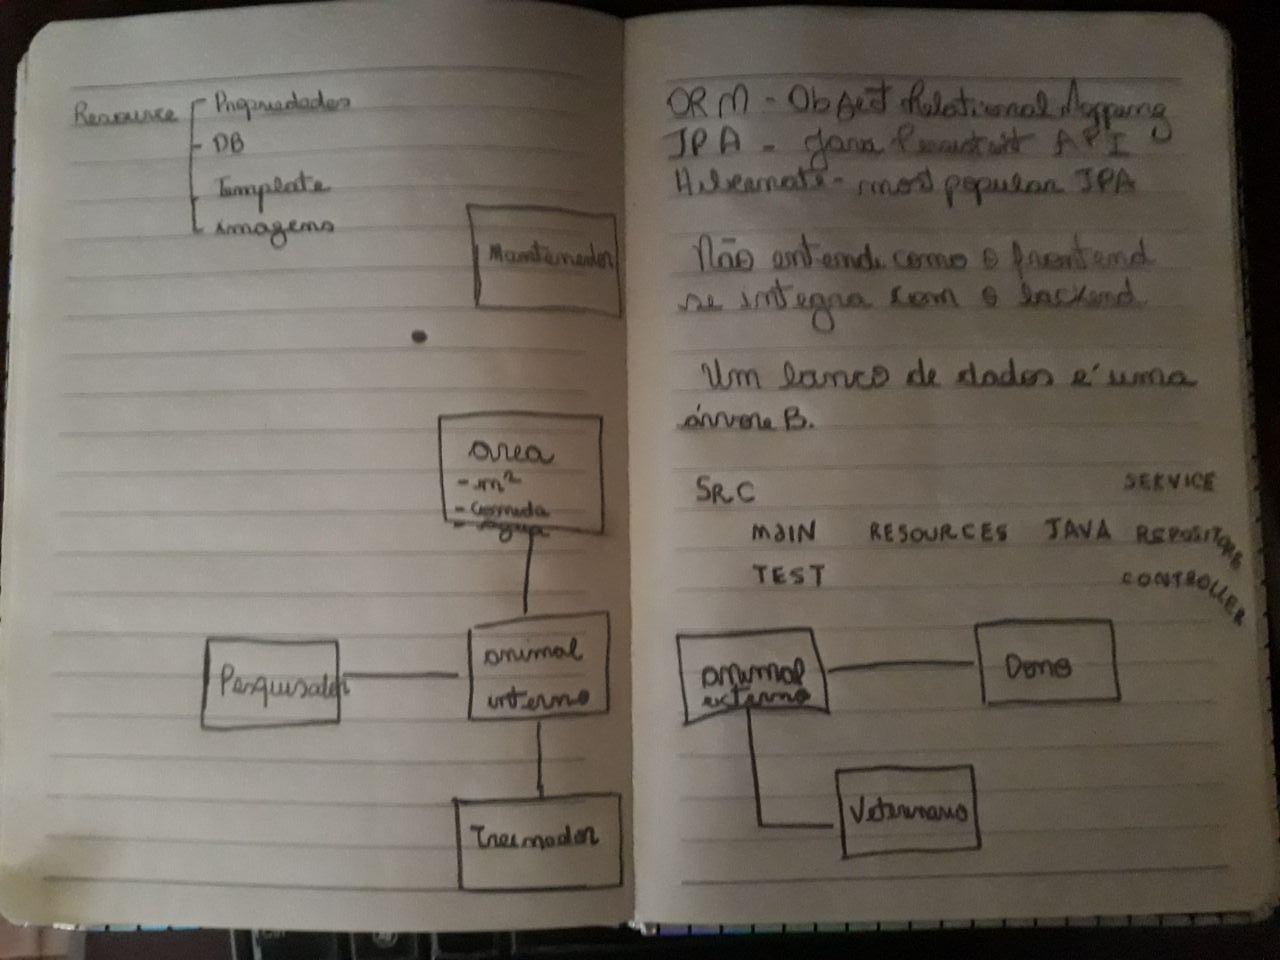 Resource
- Propriedades
- DB
- Template
- imagens
Mantenedor
area
- m²
- Comida
- água
Pesquisador
animal
interno
Treinador
ORM - Object Relational Mapping
JPA - Java Persistent API
Hibernate - most popular JPA
Não entendi como o frontend
se integra com o backend
Um banco de dados é uma
árvore B.
SRC
SERVICE
MAIN RESOURCES JAVA REPOSITORY
TEST
CONTROLLER
animal
externo
Dono
Veterinario